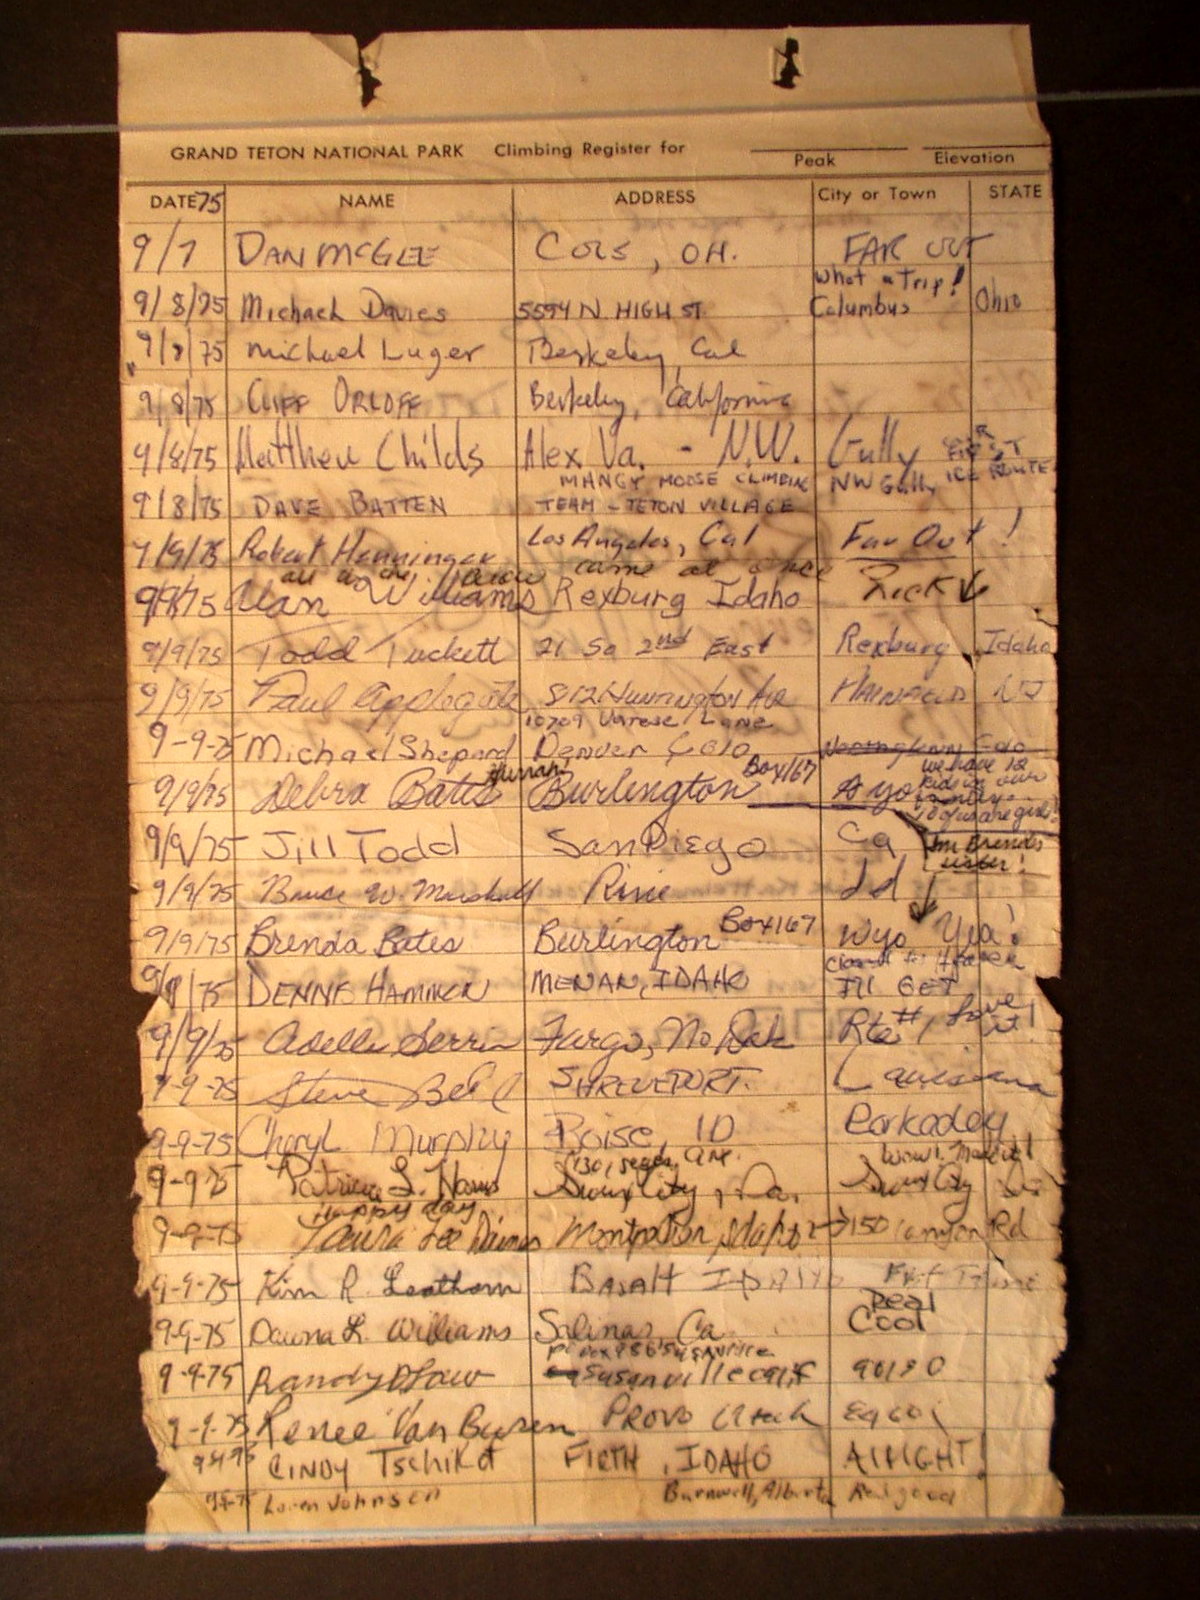 GRAND TETON NATIONAL PARK Climbing Register for Peak Elevation
DATE 75 NAME ADDRESS City or Town STATE
9/7 DAN McGEE COLS, OH. FAR OUT
What a Trip!
9/8/75 Michael Davies 5594 N. HIGH ST. Columbus Ohio
9/8/75 Michael Luger Berkeley, Cal
9/8/75 CLIFF ORLOFF Berkeley, California
9/8/75 Matthew Childs Alex Va. - N.W. Gully FIRST
MANGY MOOSE CLIMBING NW Gully ICE ROUTE
9/8/75 DAVE BATTEN TEAM - TETON VILLAGE
9/9/75 Robert Henninger Los Angeles, Cal Far Out!
came at once
9/9/75 Alan Williams Rexburg Idaho
9/9/75 Todd Tuckett 21 So 2nd East Rexburg Idaho
9/9/75 Paul Applegate Huntington Ave NJ
10709 Varese Lane
9-9-75 Michael Shepard Denver Colo
we have 12
Box 167 kids in our
9/9/75 Debra Bates Burlington family
10 of us are girls!
9/9/75 Jill Todd San Diego Ca Im Brenda's
sister!
9/9/75 Bruce W. Marshall Ririe Id
9/9/75 Brenda Bates Burlington Box 167 Wyo Yea!
9/9/75 MENAN, IDAHO I'll GET
9/9/75 Adelle Fargo, No Dak Rte #1, Love it!
9-9-75 Steve SHREVEPORT. Louisiana
9-9-75 Cheryl Murphy Boise, ID
9-9-75 Patricia L. Sioux City, Sioux City
Happy day
9-9-75 Laura Lee Montpelier, Idaho → 150 Canyon Rd
9-9-75 Kim R. Leatham BASALT IDAHO
Real
9-9-75 Dawna L. Williams Salinas, Ca. Cool
9-9-75 Randy Susanville Calif 96130
9-9-75 Renee Van Buren PROVO Utah
9-9-75 CINDY FIRTH, IDAHO AlRIGHT!
9-9-75 Loren Johnson Barnwell, Alberta Real good